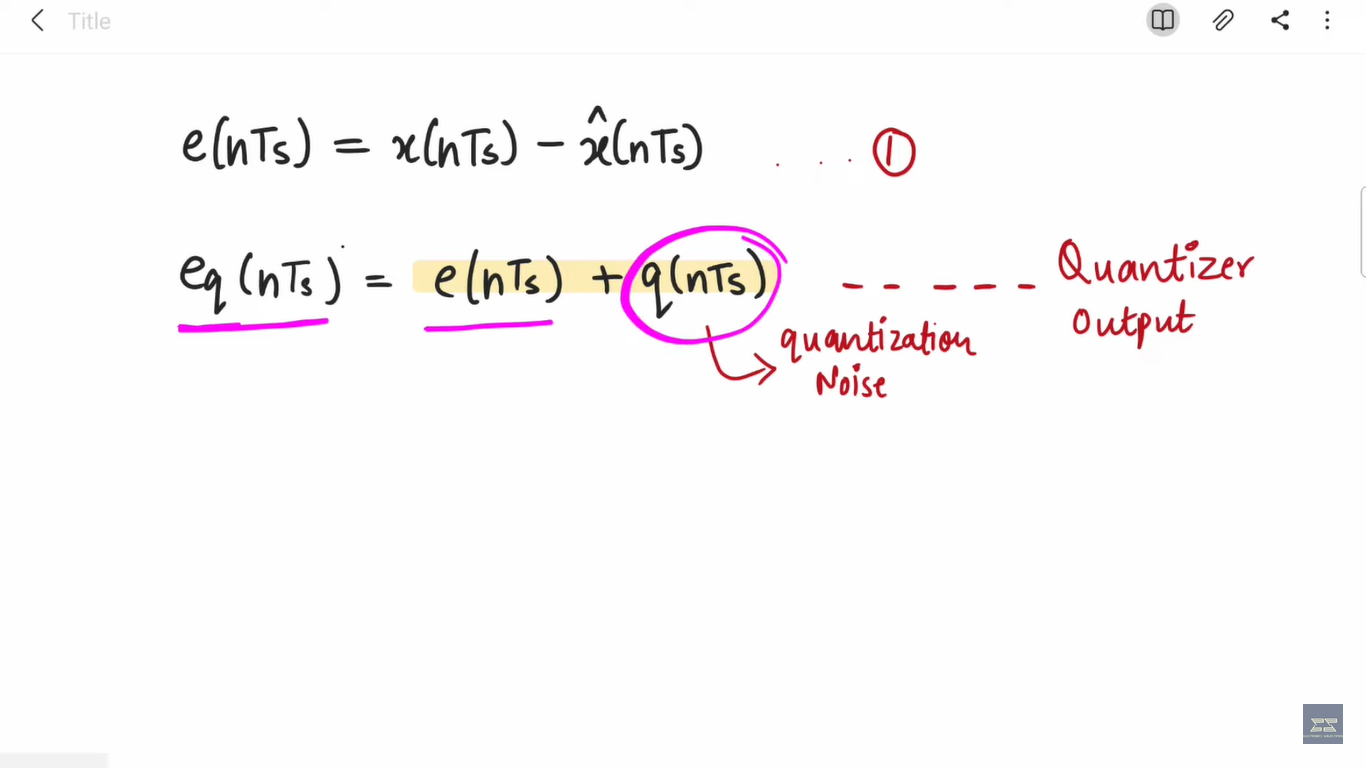 Title
e(nTs) = x(nTs) - x̂(nTs) . . . ①
eq(nTs) = e(nTs) + q(nTs) - - - - - Quantizer
Output
quantization
Noise